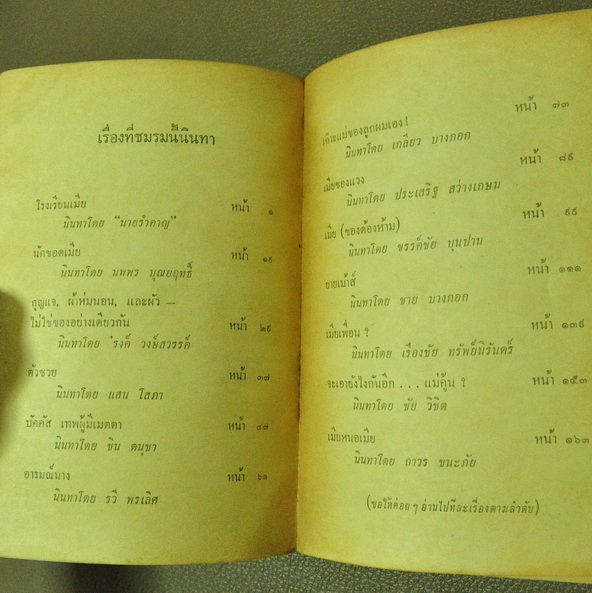 เรื่องที่ชมรมนี้นินทา
โรงเรียนเมีย หน้า ๑
นินทาโดย "นายรำคาญ"
นักขอดเมีย หน้า ๑๙
นินทาโดย นพพร บุณยฤทธิ์
กุญแจ, ผ้าห่มนอน, และผัว —
ไม่ใช่ของอย่างเดียวกัน หน้า ๒๙
นินทาโดย 'รงค์ วงษ์สวรรค์
ตัวซวย หน้า ๓๗
นินทาโดย แสน โสภา
บัคคัส เทพผู้มีเมตตา หน้า ๔๗
นินทาโดย ชิน ดนุชา
อารมณ์นาง หน้า ๖๑
นินทาโดย รวี พรเลิศ
ก็าะแม่ของลูกผมเอง! หน้า ๗๓
นินทาโดย เกลียว บางกอก
เมียของแวง หน้า ๘๙
นินทาโดย ประเสริฐ สว่างเกษม
เมีย (ของต้องห้าม) หน้า ๙๙
นินทาโดย ขรรค์ชัย บุนปาน
ยายเม้าส์ หน้า ๑๑๑
นินทาโดย ชาย บางกอก
เมียเพื่อน ? หน้า ๑๓๙
นินทาโดย เรืองชัย ทรัพย์นิรันดร์
จะเอายังไงกันอีก . . . แม่คู้น ? หน้า ๑๕๓
นินทาโดย ชัย วิชิต
เมียหนอเมีย หน้า ๑๖๓
นินทาโดย ถาวร ชนะภัย
(ขอให้ค่อย ๆ อ่านไปทีละเรื่องตามลำดับ)